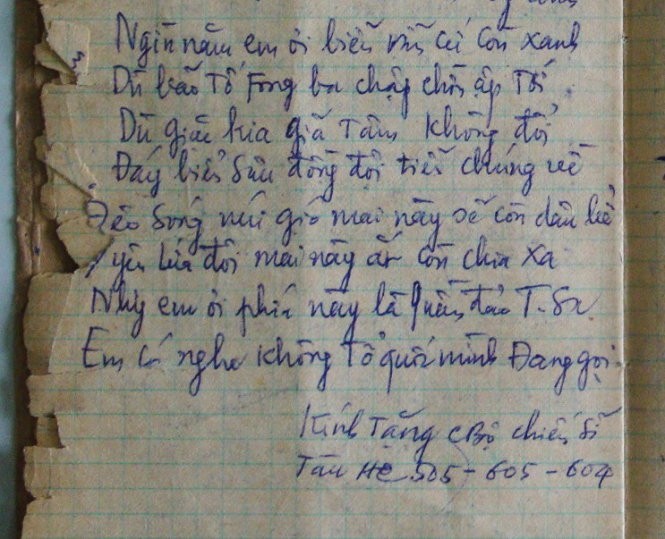 Ngìn năm em ơi biển vẫn cứ còn xanh
Dù bão Tố Fong ba chập chồn ập Tới
Dù giặc kia giã Tâm Không đổi
Đáy biển sâu đồng đội tiễn chúng về
Đèo sông núi gió mai này sẽ còn dâu bể
yêu lứa đôi mai này ắt còn chia xa
Nhưg em ơi phía này là quần đảo T.Sa
Em có nghe Không Tổ quốc mình Đang gọi
Kính Tặng CBộ chiến sĩ
Tàu HQ 505 - 605 - 604